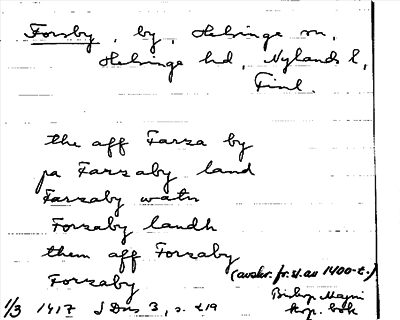 Forsby, by, Helsinge sn,
Helsinge hd, Nylands l,
Finl.
the aff Farza by
pa Farzaby land
Farzaby watn
Forzaby landh
them aff Forzaby
(avskr. fr. sl. av 1400-t.)
Forzaby
Biskop Magni
kop. bok
1/3 1417 SDns 3, s. 219